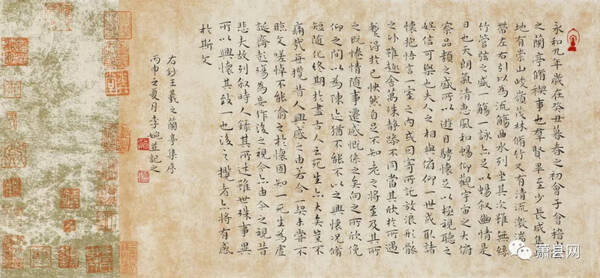 永和九年歲在癸丑暮春之初會于會稽山陰
之蘭亭脩稧事也羣賢畢至少長咸集此
地有崇山峻領茂林脩竹又有清流激湍映
帶左右引以為流觴曲水列坐其次雖無絲
竹管弦之盛一觴一詠亦足以暢敘幽情是
日也天朗氣清惠風和暢仰觀宇宙之大俯
察品類之盛所以遊目騁懷足以極視聽之
娛信可樂也夫人之相與俯仰一世或取諸
懷抱悟言一室之內或因寄所託放浪形骸
之外雖趣舍萬殊靜躁不同當其欣於所遇
暫得於己怏然自足不知老之將至及其所
之既惓情隨事遷感慨係之矣向之所欣俛
仰之間以為陳迹猶不能不以之興懷況脩
短隨化終期於盡古人云死生亦大矣豈不
痛哉每攬昔人興感之由若合一契未嘗不
臨文嗟悼不能喻之於懷固知一死生為虛
誕齊彭殤為妄作後之視今亦由今之視昔
悲夫故列敘時人錄其所述雖世殊事異
所以興懷其致一也後之攬者亦將有感
於斯文
右抄王羲之蘭亭集序
丙申夏月李記之
萧县网